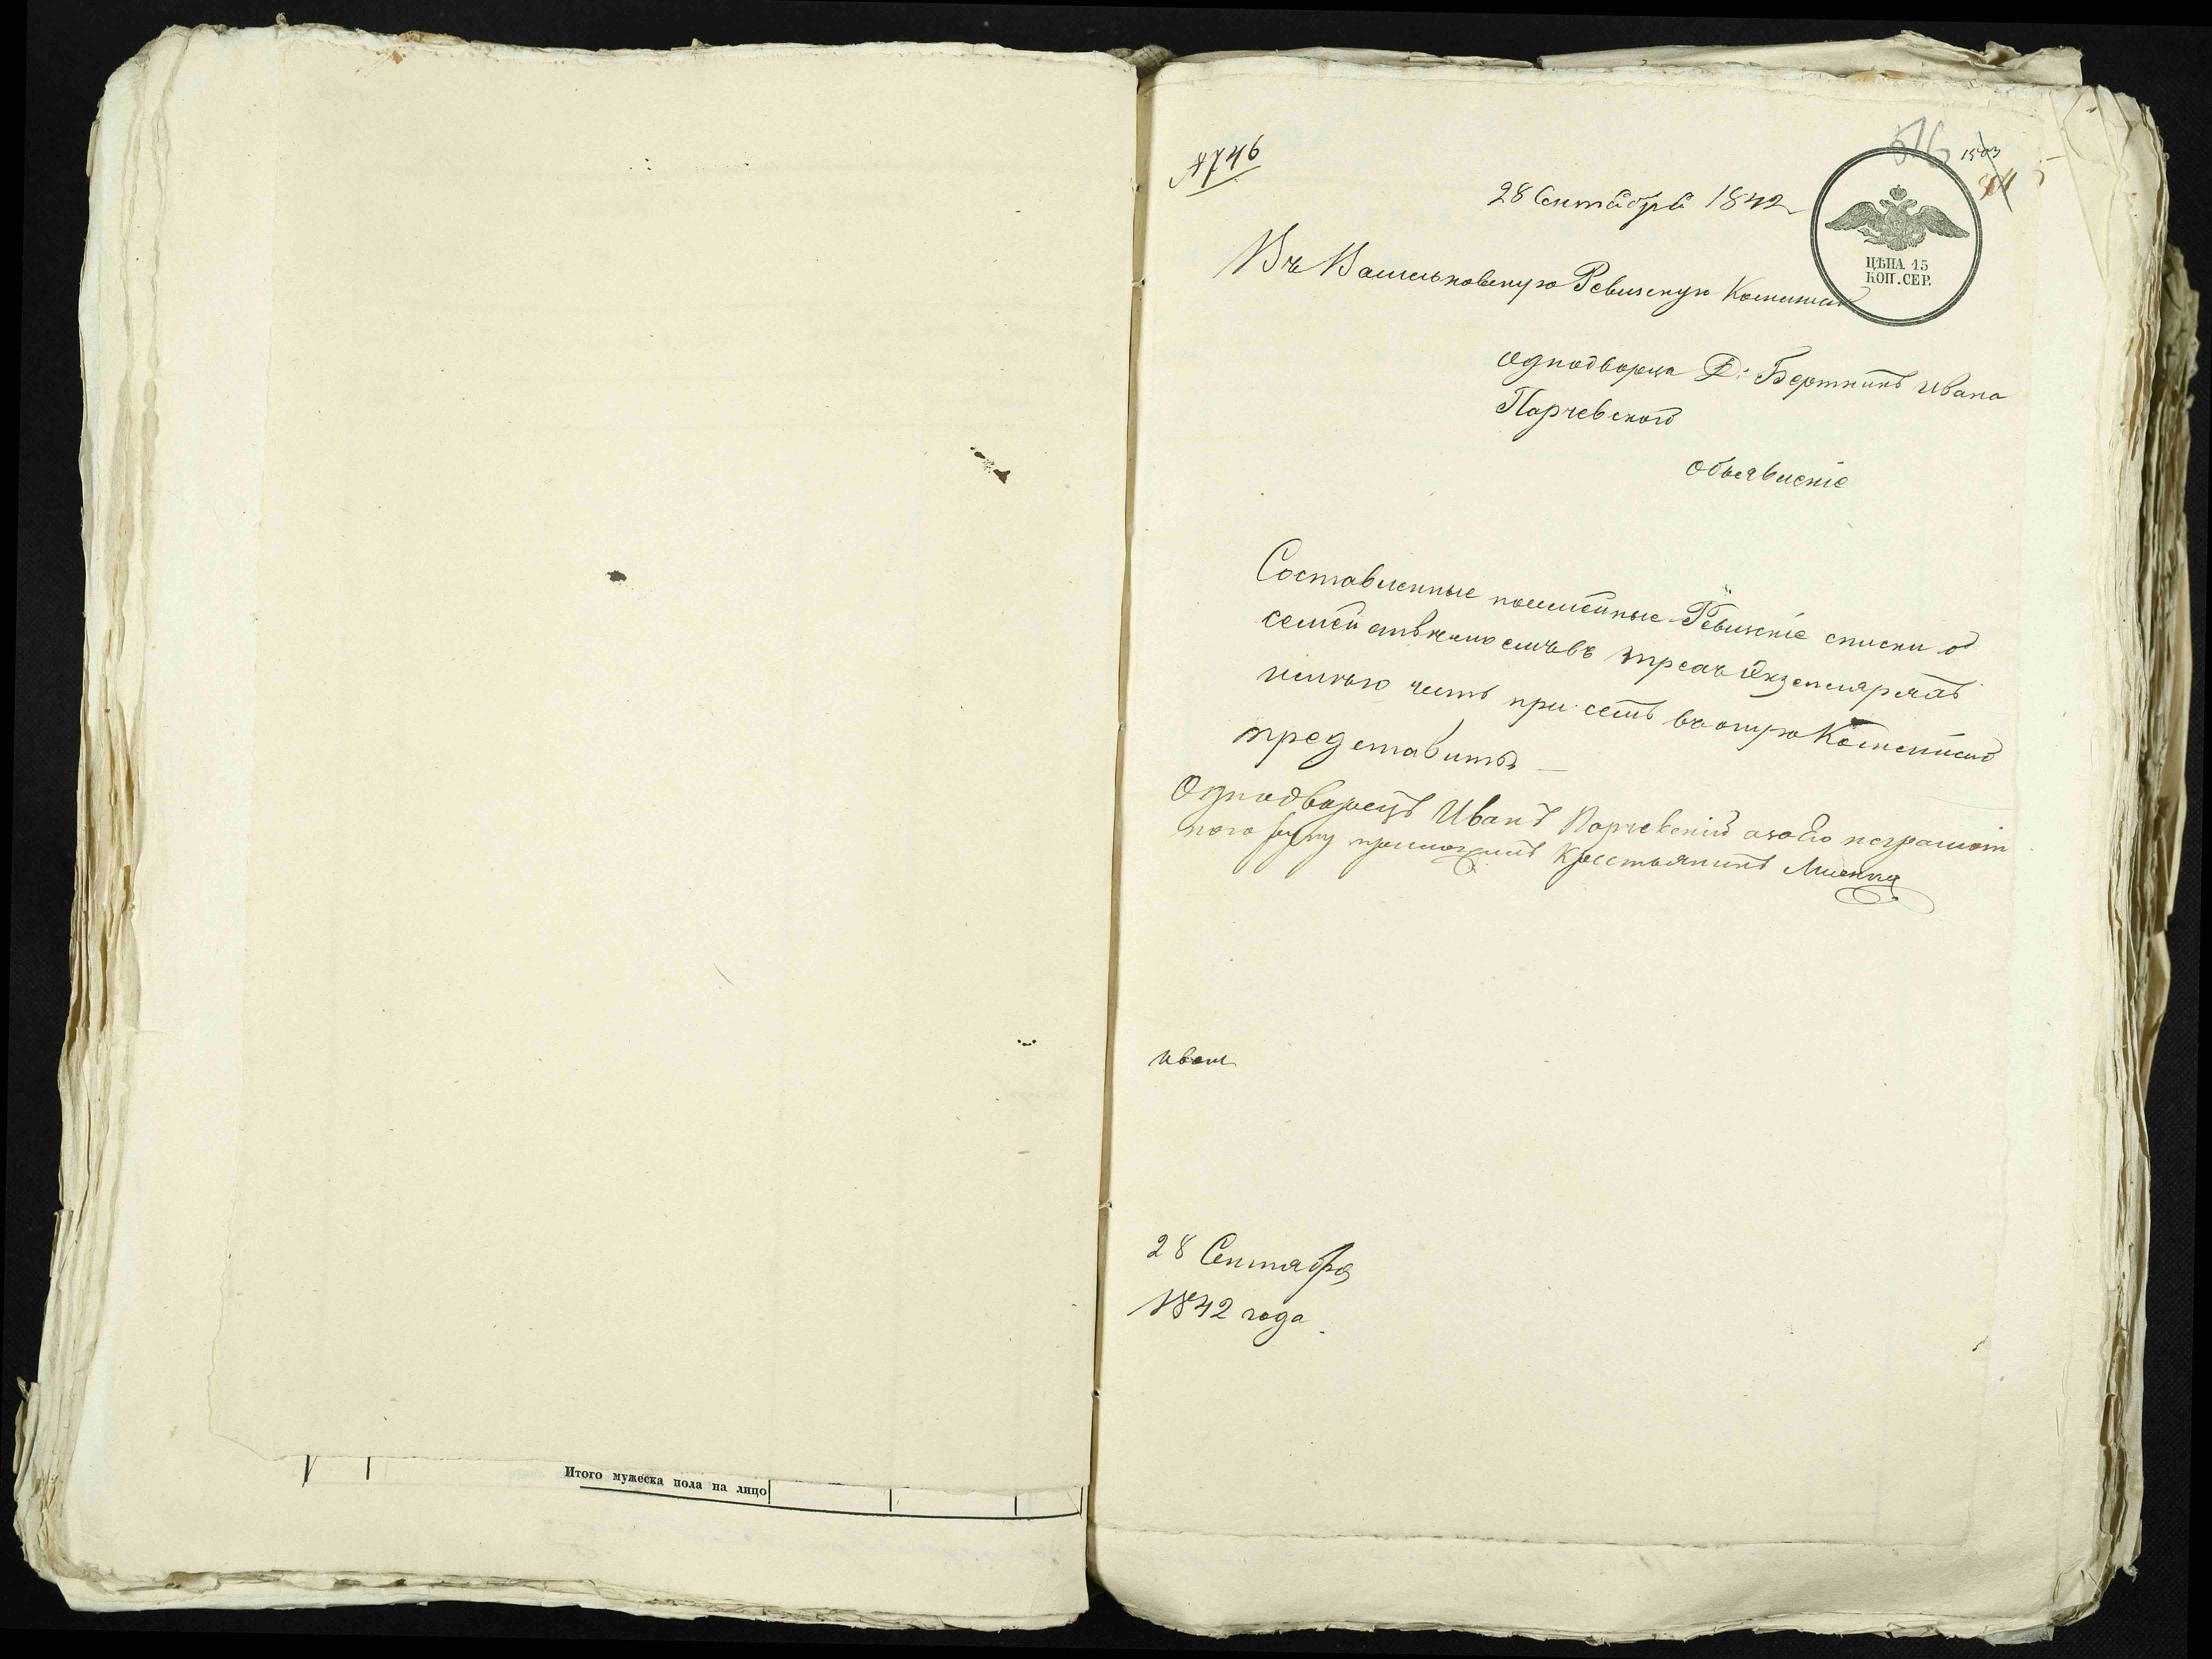 Итого мужеска пола на лицо
№ 746
516
1503
28 Сентября 1842
ЦѢНА 15
КОП. СЕР.
Въ Васильковскую Ревизскую Комисiю
однодворца Д: Ивана
Парчевского
объявленiе
Составленные посемейные Ревизскiе списки о
семействѣ въ трехъ Экземплярахъ
честь при семъ въ оную Комисiю
представить
Однодворецъ Иванъ Парчевскiй а за его неграмот
ного руку приложилъ Крестьянинъ
28 Сентября
1842 года